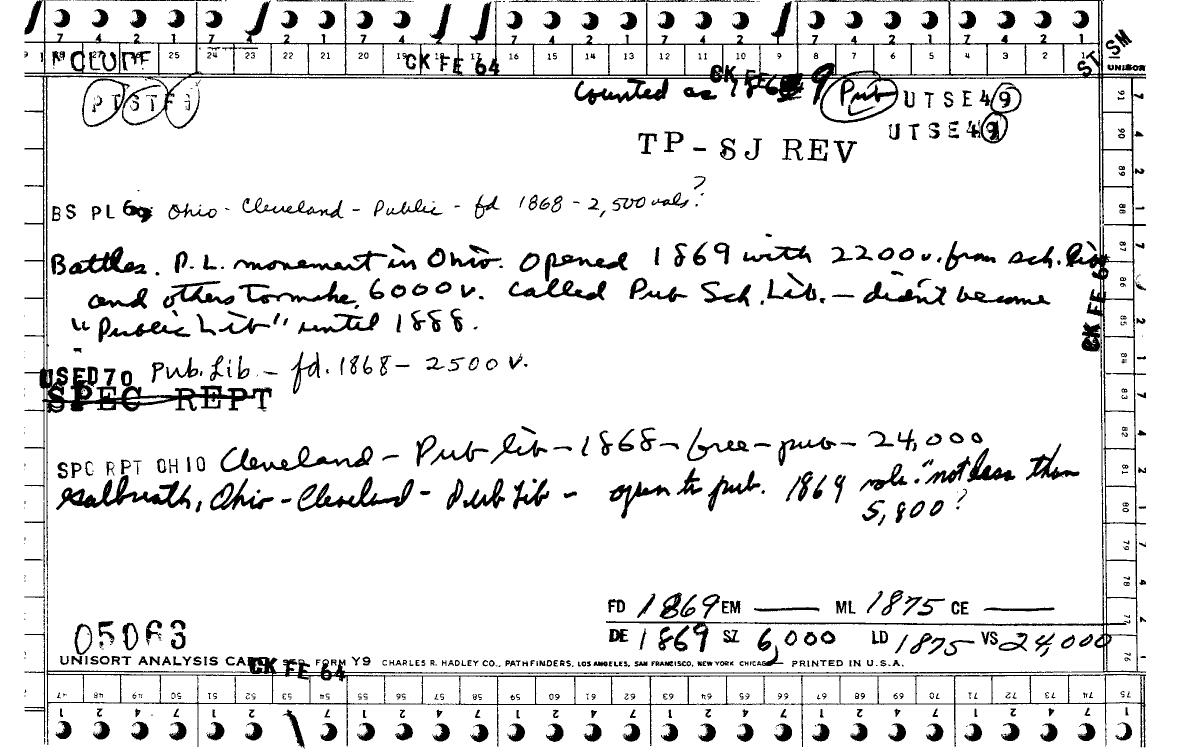 7 4 2 1 7 4 2 1 7 4 2 1 7 4 2 1 7 4 2 1 7 4 2 1
25 24 23 22 21 20 19 18 17 16 15 14 13 12 11 10 9 8 7 6 5 4 3 2 1
CK FE 64
CK FE
ST SM
UNISORT
PTSTF
Counted as 1869 Pub UTSE49
UTSE49
TP-SJ REV
BS PL Ohio - Cleveland - Public - fd 1868 - 2,500 vols?
Battles. P.L. movement in Ohio. Opened 1869 with 2200v. from sch. lib
and others to make 6000 v. Called Pub Sch. Lib. - didn't become
"Public Lib" until 1888.
USED70 Pub. Lib - fd. 1868 - 2500 v.
SPEC REPT
SPC RPT OHIO Cleveland - Pub lib - 1868 - free - pub - 24,000
Galbreath, Ohio - Cleveland - Pub Lib - open to pub. 1869 vols. "not less than
5,800?
CK FE 64
91 90 89 88 87 86 85 84 83 82 81 80 79 78 77 76
FD 1869 EM — ML 1875 CE —
05063
DE 1869 SZ 6,000 LD 1875 VS 24,000
UNISORT ANALYSIS CARD FORM Y9 CHARLES R. HADLEY CO., PATHFINDERS, LOS ANGELES, SAN FRANCISCO, NEW YORK CHICAGO PRINTED IN U.S.A.
CK FE 64
47 48 49 50 51 52 53 54 55 56 57 58 59 60 61 62 63 64 65 66 67 68 69 70 71 72 73 74 75
1 2 4 7 1 2 4 7 1 2 4 7 1 2 4 7 1 2 4 7 1 2 4 7 1 2 4 7 1